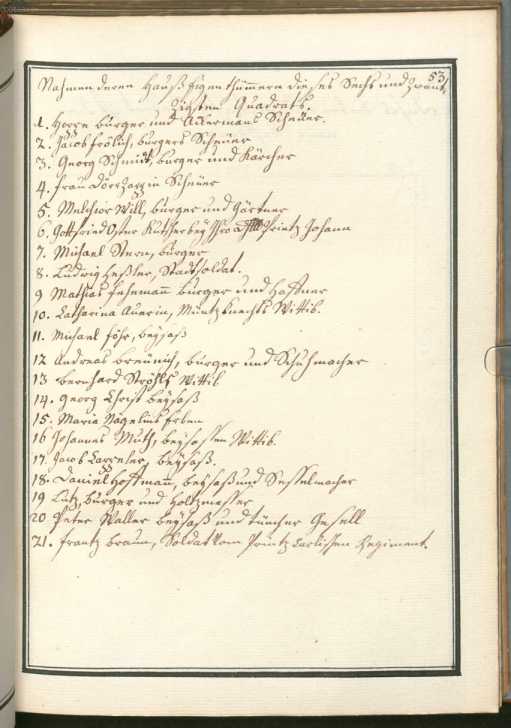 53
Nahmen deren Hauß Eigenthümmern dieses Sechs und Zwant-
zigsten Quadrats.
1. Herrn bürger und Ackermans Scheuer.
2. Jacob frölich, bürgers Scheuer
3. Georg Schmidt, burger und Kärcher
4. frau Scheuer
5. Melchior Will, bürger und Gärtner
6. Gottfried Printz Johann
7. Michael Stern, bürger
8. Ludwig Heßler, Stadtsoldat.
9 Mathias Fehemann bürger und Haffner
10. Catharina Auerin, Müntzknechts Wittib.
11. Michael föhr, beysaß
12 Andreas breünich, bürger und Schuhmacher
13 bernhard Ströhls Wittib
14. Georg Christ beysaß
15. Maria Nägelins Erben
16 Johannes Muth, beysassen Wittib.
17. Jacob beysaß.
18. Daniel Hoffmann, beysaß und Sesselmacher
19 Lutz, bürger und Holtzmesser
20 Peter Waller beysaß und tüncher Gesell
21. frantz braun, Soldat vom Printz Carlischen Regiment.